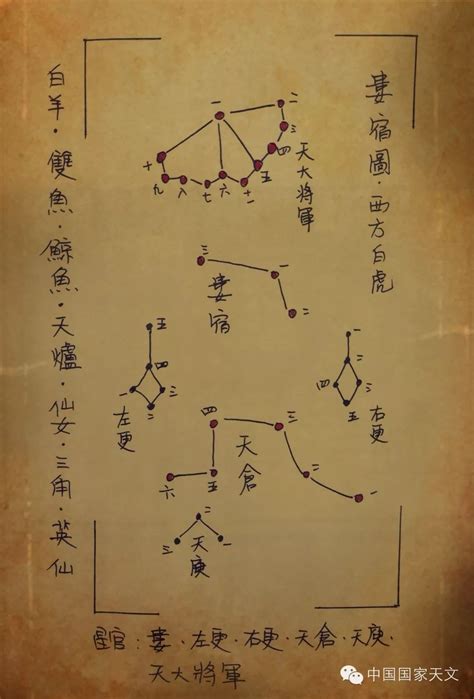 婁宿圖·西方白虎
白羊·雙魚·鯨魚·天爐·仙女·三角·英仙
一
二
三
四
五
十一
六
七
八
九
十
天大將軍
三
一
二
婁宿
五
四
一
三
二
左更
一
二
四
三
五
右更
四
三
天倉
六
五
二
一
二
三
一
天庾
星官：婁·左更·右更·天倉·天庾·
天大將軍
中国国家天文